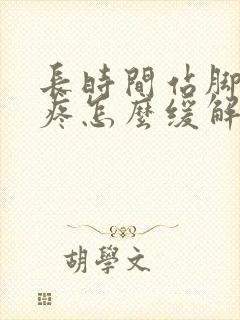 長時間站腳
疼怎麼緩解
胡學文